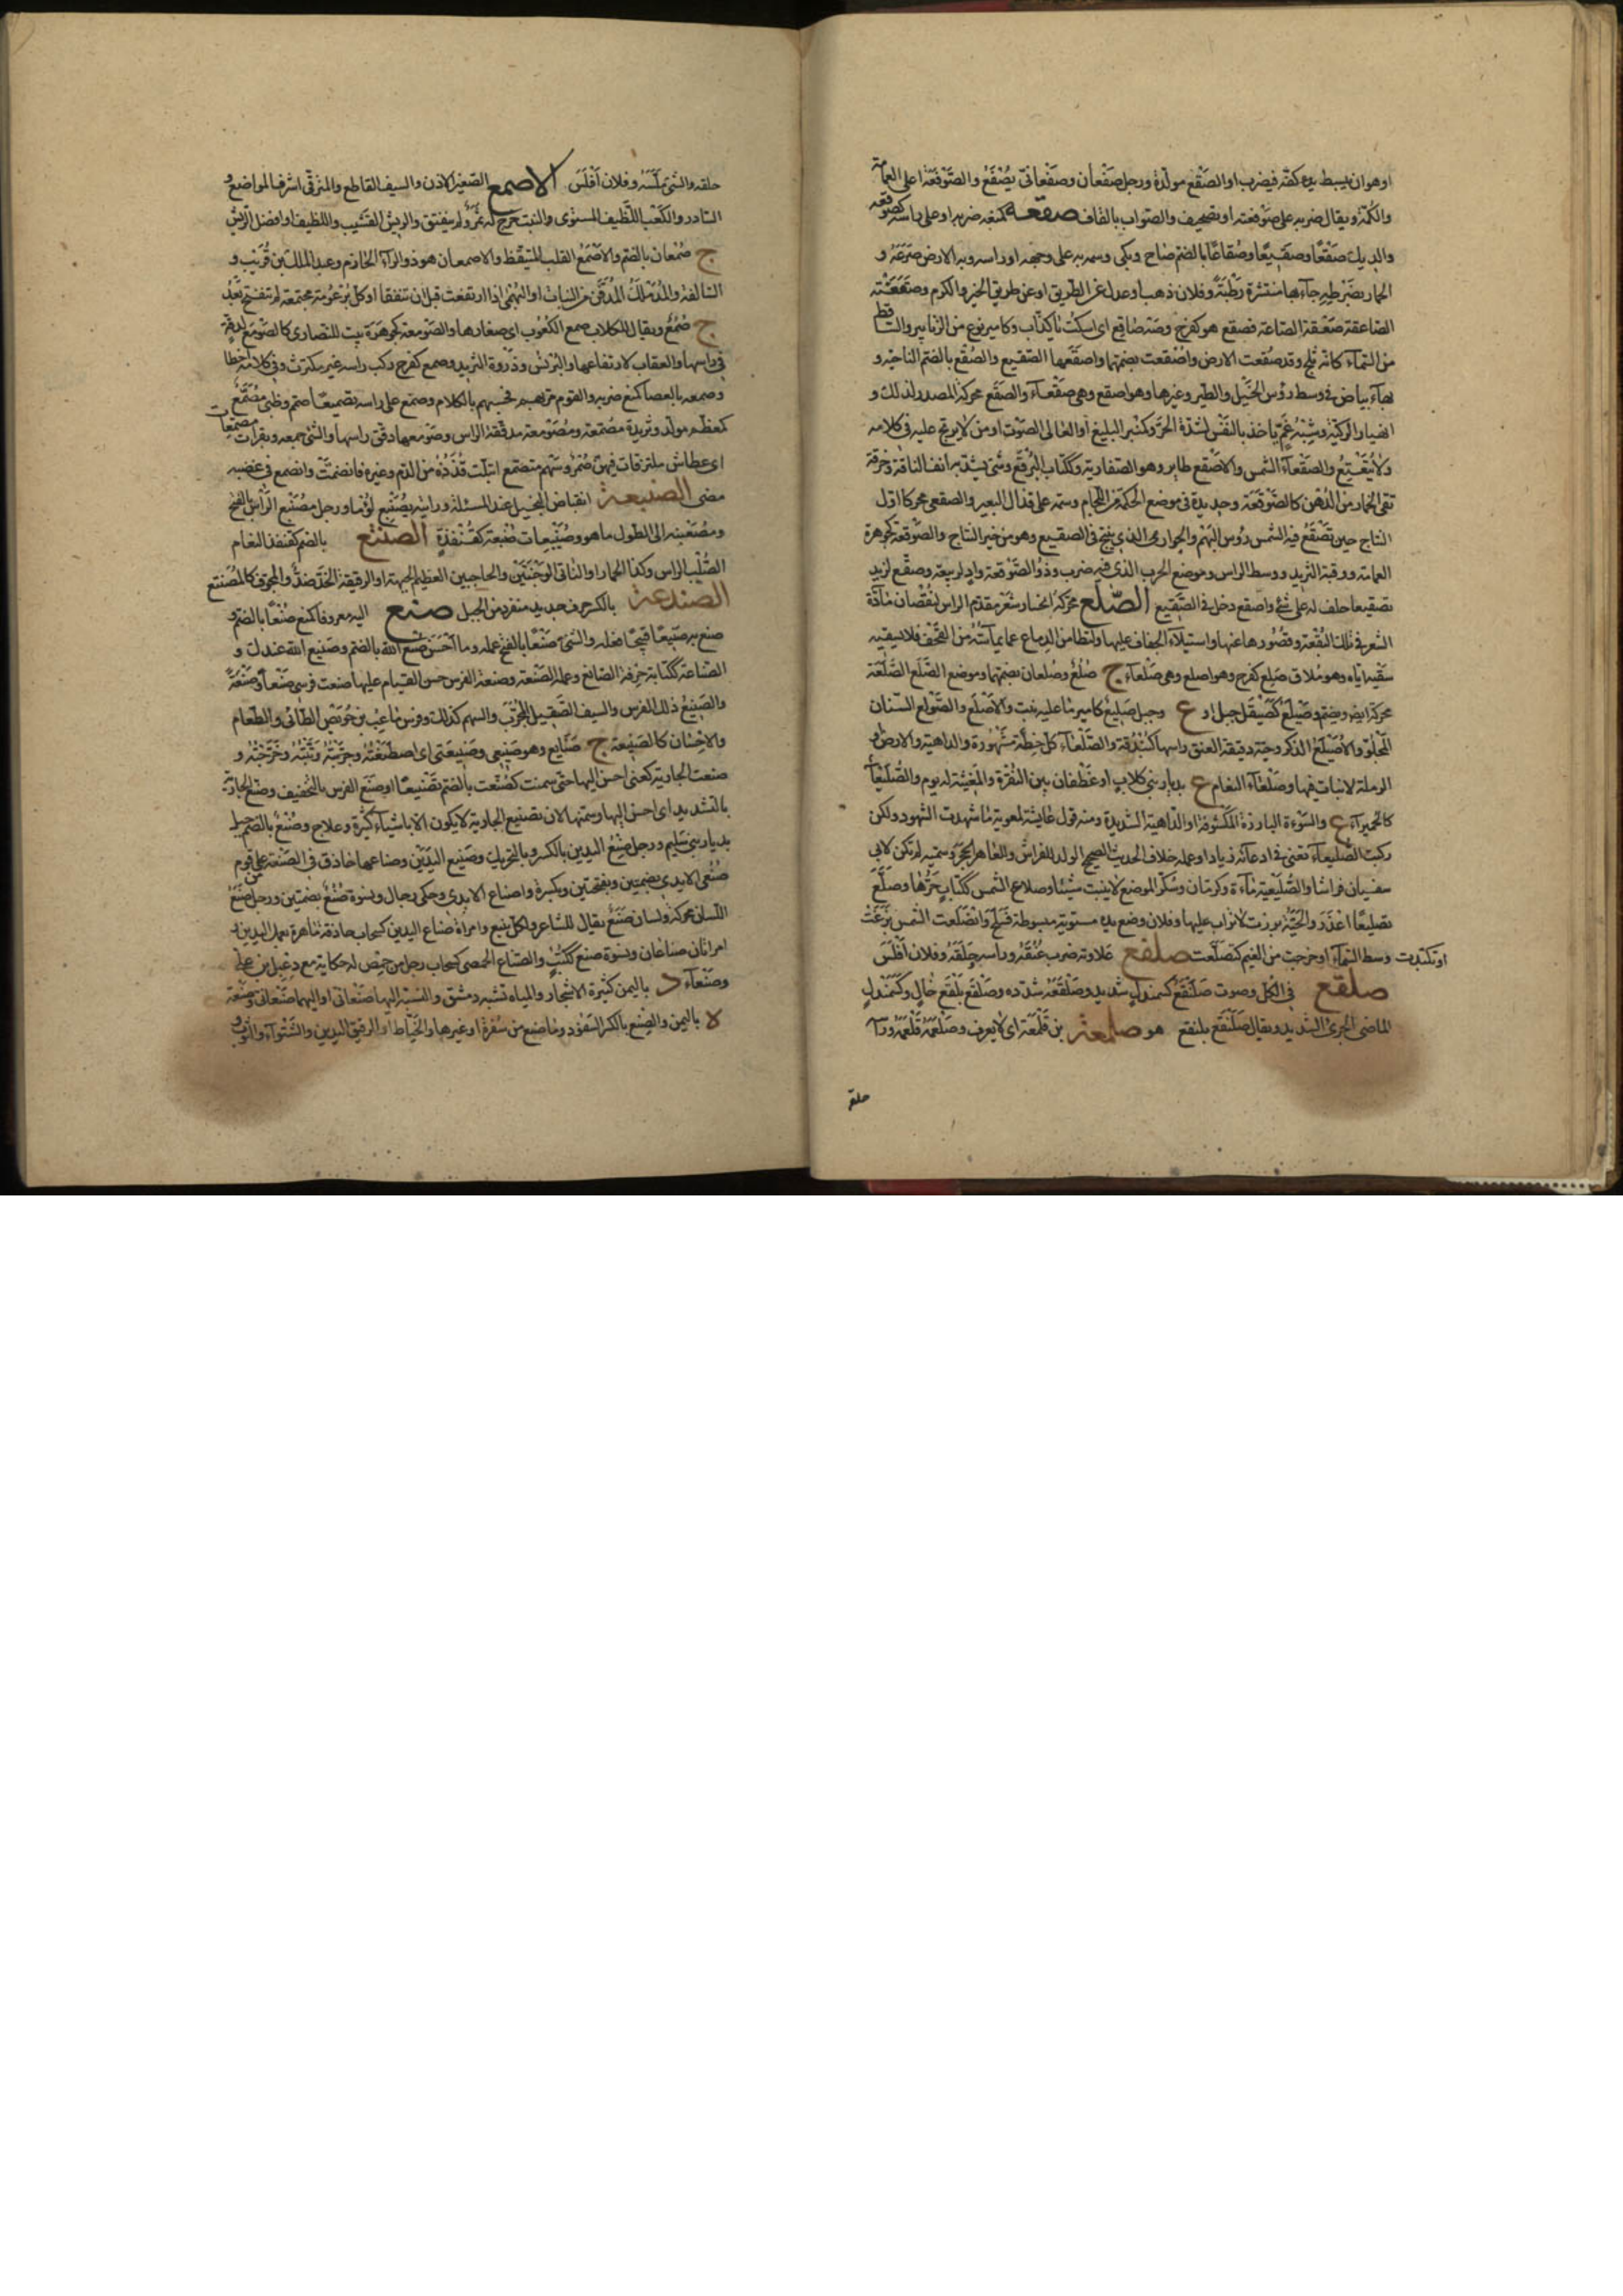 او هو ان يبسط يده كفّه فيضرب او الصَّفْع مولّدة ورجل صَفْعان وصَفْعانيّ يُصْفَعُ والصَّوْفَعَة اعلى العمامة
والكُمّة ويقال ضربه على صَوْفعته او تصحيف والصواب بالقاف صقعه كمنعه ضربه او على راسه كصوقعه
والديك صَقْعًا وصَقيعًا وصُقاعًا بالضم صاح وبكى وسمه به على وجهه او راسه وبه الارض صَرَعَهُ و
الحمار بضَرْطه جاء بها منتشرة رطبة وفلان ذهب او عدل عن الطريق او عن طريق الخير والكرم وصقعته
الصاعقة صعقته الصاعقة فصقع هو كفرح وصَهْ صاقِع اى اسكت يا كذّاب وكامير نوع من الزنابير والساقط
من السماء كانّه ثلج وقد صُقعت الارض واصْقعت بضمّهما واصقعها الصقيع والصُقْع بالضم الناحية و
بهاء بياض فى وسط رؤس الخيل والطير وغيرها وهو اصقع وهى صقعاء والصَقَع محركة المصدر لذلك و
انهيار الركيّة وشِبْهُ غَمّ ياخذ بالنفس لشدّة الحَرّ وكمنبر البليغ او العالى الصوت او من لا يرتج عليه فى كلامه
ولا يتعتع والصقعاء الشمس والاصقع طاير وهو الصفارية وككتاب البُرْقَع وشى يشدّ به انف الناقة وخرقة
تقى الخمار من الدُهن كالصوقعة وحديدة فى موضع الحكمة من اللجام وسمة على قذال البعير والصقعى محركا اول
النتاج حين تصقع فيه الشمس رؤس البَهْم والحُوار الذى ينتج فى الصقيع وهو من خير النتاج والصوقعة كجوهرة
العمامة ووقبة الثريد ووسط الراس وموضع الحرب الذى فيه ضرب وذو الصوقعة واد لربيعة وصقّع لزيد
تصقيعا حلف له على شئ واصقع دخل فى الصقيع الصّلع محركة انحسار شعر مقدم الراس لنقصان مادّة
الشعر فى تلك البقعة وقصورها عنها واستيلاء الجفاف عليها ولتطامن الدماغ عما يماسّه من القحف فلا يسقيه
سقيه اياه وهو مُلاقٍ صلع كفرح وهو اصلع وهى صلعاء ج صُلعٌ وصُلعان بضمّهما وموضع الصَلَع الصَلَعة
محركة ايضا ويضم وصَيْلع كصيقل جبل او ع وجبل صليع كامير ما عليه نبت والاصلع والصَوْلع السنان
المجلوّ والاُصَيْلعُ الذكر وحيّة دقيقة العنق راسها كبندقة والصلعاء كل خطّة مشهورة والداهية والارض او
الرملة لا نبات فيها وصلعاء النعام ع بديار بنى كلاب او غطفان بين النقرة والمغيثة له يوم والصليعاء
كالحميراء ع والسَوءة البارزة المكشوفة او الداهية الشديدة ومنه قول عايشة لمعوية ما شهدت الشهود ولكن
ركبت الصليعاء تعنى فى ادعائه زيادا وعمله خلاف الحديث الصحيح الولد للفراش وللعاهر الحجر وسميه لم تكن لابى
سفيان فراشا والصليعية ماءة وكرمان وسكّر الموضع لا ينبت شيئا وصلاع الشمس ككتاب حرّها وصَلّع
تصليعا اعذر والحيّة برزت لا تراب عليها وفلان وضع يده مستوية مبسوطة فسلح وانصلعت الشمس بزغت
او تكبدت وسط السماء او خرجت من الغيم كتصلعت صلفع علاوته ضرب عُنُقه وراسه حلقه وفلان افلس
صلقع فى الكل وصوت صَلَنْقَع كسمندل شديد وصلقعه شدده وصلقع بلقع خالٍ وكسمندل
الماضى الجرئ الشديد ويقال صلنقع بلنقع هو صلمعة بن قلمعة اى لا يعرف وصلمعه قلعه وراسه
حلقه
حلقه والشئ ملّسه وفلان افلس الاصمع الصغير الاذن والسيف القاطع والمترقى اشرف المواضع و
السادر والكعب اللطيف المستوى والنبت خرج له ثمر ولم ينفتق والريش القشيب واللطيف او افضل الريش
ج صُمعان بالضم والاصمع القلب المتيقظ والاصمعان هو ذو الراء الحازم وعبد الملك بن قُرَيْب و
السالفة والمدملك المدقّق من النبات او البهمى اذا ارتفعت قبل ان تتفقا او كل برعومة مجتمعة لم تنفتح بعد
ج صُمع ويقال للكلاب صمع الكعوب اى صغارها والصومعة كجوهرة بيت للنصارى كالصومع لدقة
فى راسها والعقاب لارتفاعها والبرنس وذروة الثريد وصمع كفرح ركب راسه غير مكترث وفى كلامه اخطا
وصمعه بالعصا كمنع ضربه والقوم مر بهم فحبسهم بالكلام وصمّع على راسه تصميعا صمم وظبى مُصَمّع
كمعظم مولّد وثريدة مصمّعة ومصومعة مدققة الراس وصومعها دقّق راسها والشئ جمعه وبقرات مصمعات
اى عطاش ملتزقات فيهن ضمر وسهم متصمع ابتلت قذذه من الدم وغيره فانضمت وانصمع فى غضبه
مضى الصنبعة انقباض البخيل عند المسئلة ورايته يصنبع لؤما ورجل مصنبع الراس بالفتح
ومصعنبه الى الطول ما هو وصُنيبعات صُنبعة كقنفذة الصنتع بالضم كقنفذ النعام
الصلب الراس وكذا الحمار او الناتى الوجنتين والحاجبين العظيم الجبهة او الرقيقة الخدّ ضدّ والمجوف كالمصنتع
الصندعة بالكسر حرف حديد منفرد من الجبل صنع اليه معروفا كمنع صُنعا بالضم و
صنع به صنيعا قبيحا فعله والشئ صَنعا بالفتح عمله وما احسن صُنع الله بالضم وصنيع الله عندك و
الصناعة ككتابة حرفة الصانع وعمله الصنعة وصنعة الفرس حسن القيام عليها صنعت فرسى صنعا وصنعة
والصنيع ذلك الفرس والسيف الصقيل المجرّب والسهم كذلك وفرس باعث بن حُوَيْص الطائى والطعام
والاحسان كالصنيعة ج صنايع وهو صنيعى وصنيعتى اى اصطنعته وجربته وثبّته وخرّجته و
صنعت الجارية كعنى احسن اليها حتى سمنت كصُنّعت بالضم تصنيعا او صنع الفرس بالتخفيف وصنّع الجارية
بالتشديد اى احسن اليها وسمّنها لان تصنيع الجارية لا يكون الا باشياء كثيرة وعلاج وصُنْع بالضم جبل
بديار بنى سليم ورجل صِنْع اليدين بالكسر وبالتحريك وصنيع اليدين وصناعهما حاذق فى الصنعة من قوم
صُنْعى الايدى بضمة وبضمتين وبفتحتين وبكسرة واصناع الايدى وحكى رجال ونسوة صُنُع بضمتين ورجل صنع
اللسان محركة ولسان صنع يقال للشاعر ولكل بليغ وامراة صناع اليدين كسحاب حاذقة ماهرة بعمل اليدين و
امراتان صناعان ونسوة صنع ككتب والصناع الحمصى كسحاب رجل من حمص له حكاية مع دعبل بن على
وصنعاء د باليمن كثيرة الاشجار والمياه تشبه دمشق والنسبة اليها صنعانى او اليهما صنعانى وصنعة
ة باليمن والصِنْع بالكسر السفود وما صنع من سُفرة او غيرها والخياط او الرقيق اليدين والشواء والثوب و